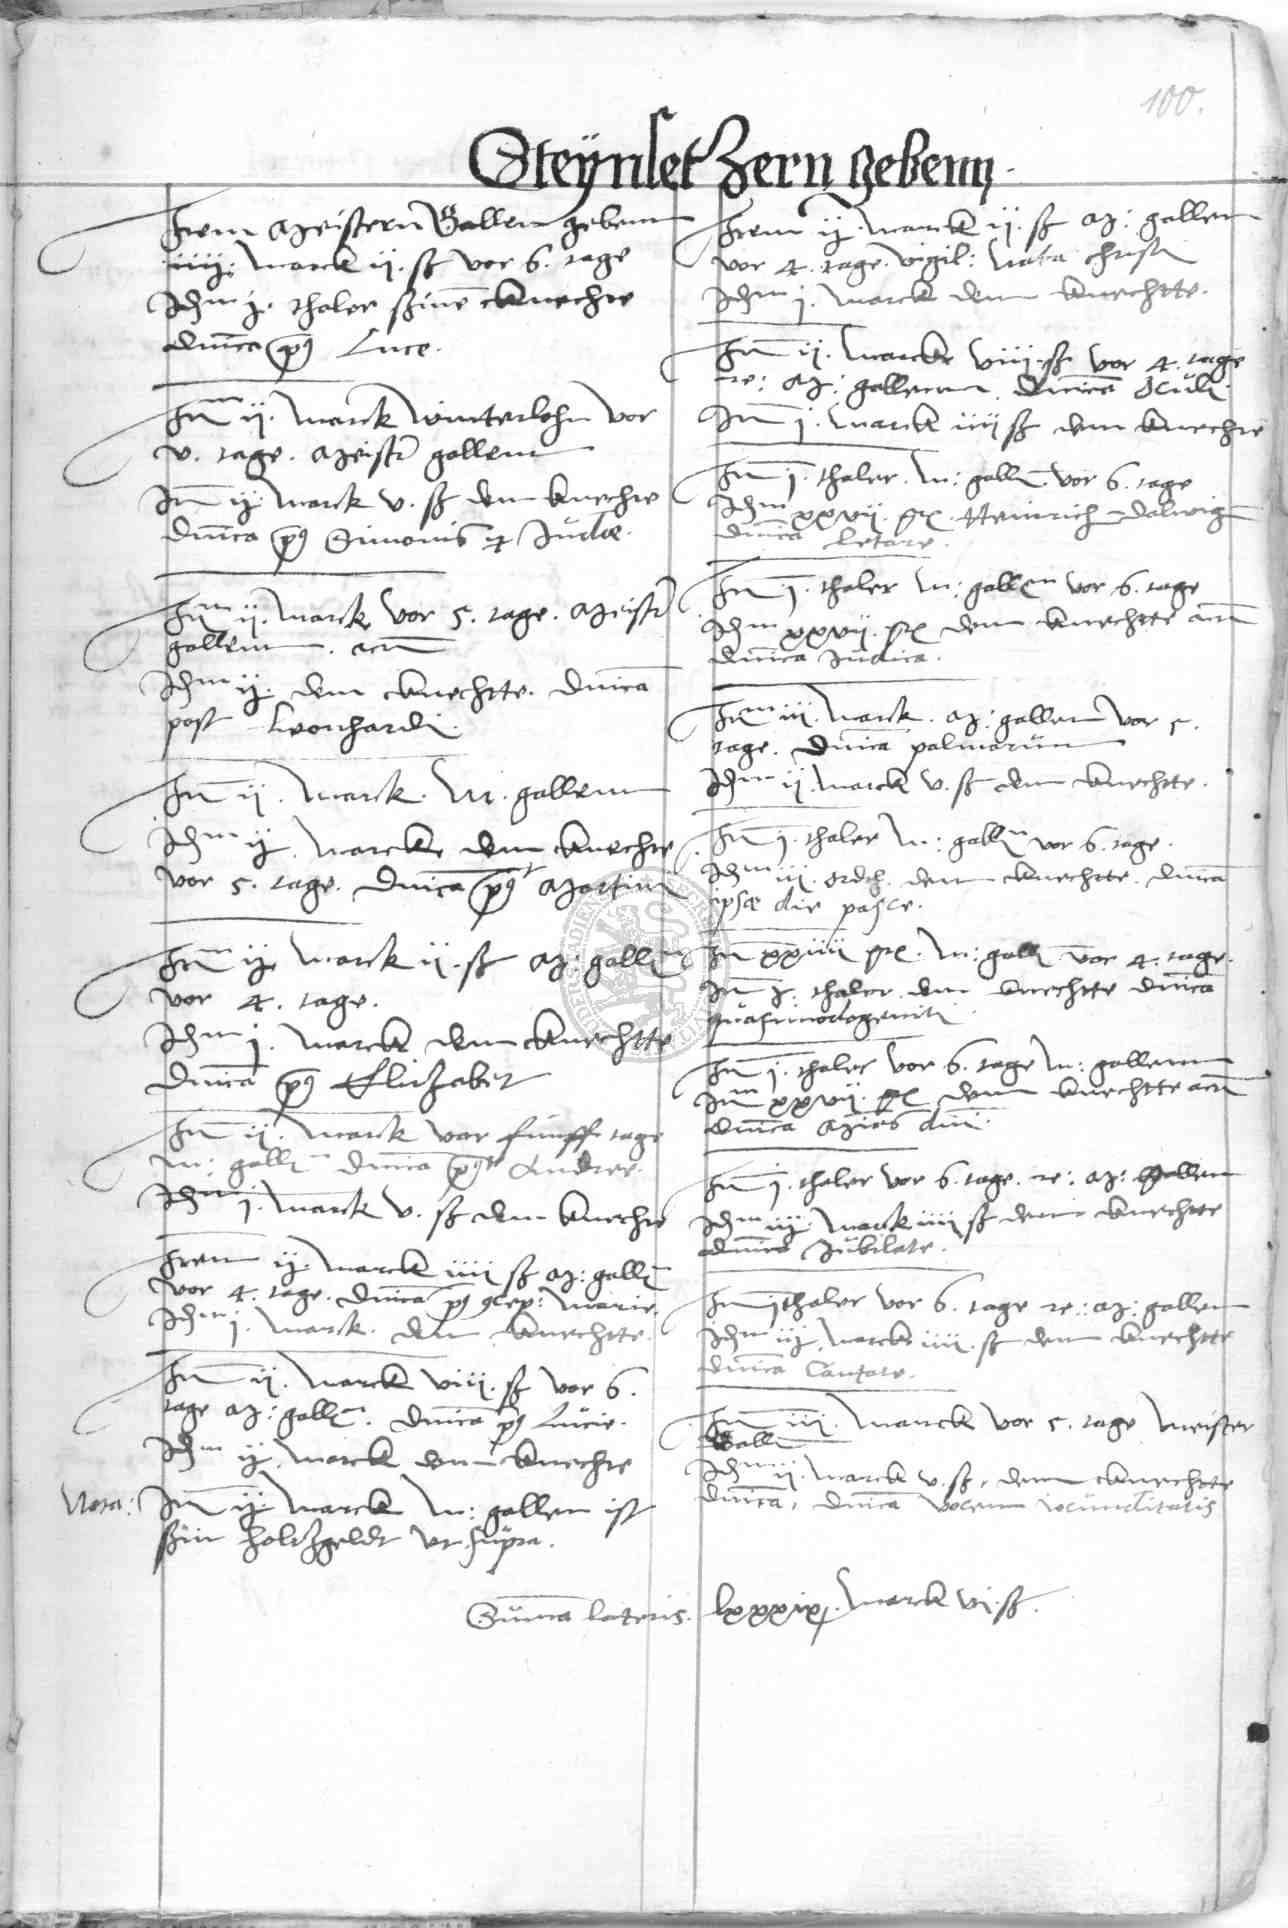 100.
Steÿnsetzern gebenn
Item Meistern Gallen gebenn
iiij. marck ij. ß vor 6. tage
Idm j. thaler ßine knechte
dnica pꝰ Luce.
Itm ij. marck winterlohn vor
v. tage. Meistr gallenn
Itm ij. marck v. ß dem knechte
Dnica pꝰ Simonis et Judæ.
Itm ij. marck vor 5. tage. Meistr
gallenn. actū
Idm ij. dem knechtte. Dnica
post Leonhardi.
Itm ij. marck. M. gallenn
Idm ij. marck dem knechte
vor 5. tage. Dnica pꝰ Martini
Itm ij. marck ij. ß M: gallen
vor 4. tage.
Idm j. marck dem knechtte
Dnica pꝰ Elizabet
Itm ij. marck vor funff tage
M: galln Dnica pꝰ Andree.
Idm j. marck v. ß dem knechte
Item ij. marck iiij ß M: galln
vor 4. tage. Dnica pꝰ ꝯcep: marie.
Idm j. marck. dem knechtte.
Itm ij. marck viij. ß vor 6.
tage M: galln. Dnica pꝰ Lucie.
Idm ij. marck dem knechte
Nota: Itm ij. marck M: gallen ist
ßin holtzgeldt vt supra.
Item ij. marck ij. ß M: gallen
vor 4. tage. vigil: Nata christi
Idm j. marck dem knechtte.
Itm ij. marck viij. ß vor 4. tage
re: M: gallenn. Dnica Oculi.
Itm j. marck iiij ß dem knechte
Itm j. thaler. M: galln vor 6. tage
Idm xxvij. gr. Heinrich dalwig
Dnica letare.
Itm j. thaler M: gallen vor 6. tage
Idm xxvij. gr dem knechtte actū
Dnica Judica.
Itm iij. marck. M: gallen vor 5.
tage. Dnica palmarum
Idm ij. marck v. ß dem knechtte.
Itm j. thaler M: galln vor 6. tage.
Idm iij. ordt. dem knechtte. Dnica
ipsæ die pasce.
Itm xxiiij gr. M: galln vor 4. tage.
Itm j. thaler. dem knechtte Dnica
quasimodogeniti.
Itm j. thaler vor 6. tage M: gallenn
Itm xxvij. gr dem knechtte actū
Dnica Mias dni.
Itm j. thaler vor 6. tage. re: M: Gallen
Idm iij. marck iiij ß dem knechtte
dnica Jubilate.
Itm j thaler vor 6. tage re: M: gallen
Idm iij. marck iiij. ß dem knechtte
Dnica Cantate.
Itm iij. marck vor 5. tage meister
Galln
Idm ij. marck v. ß. dem knechtte
Dnica, Dnica vocem iocunditatis
Suma lateris. lxxxix. marck vi. ß.